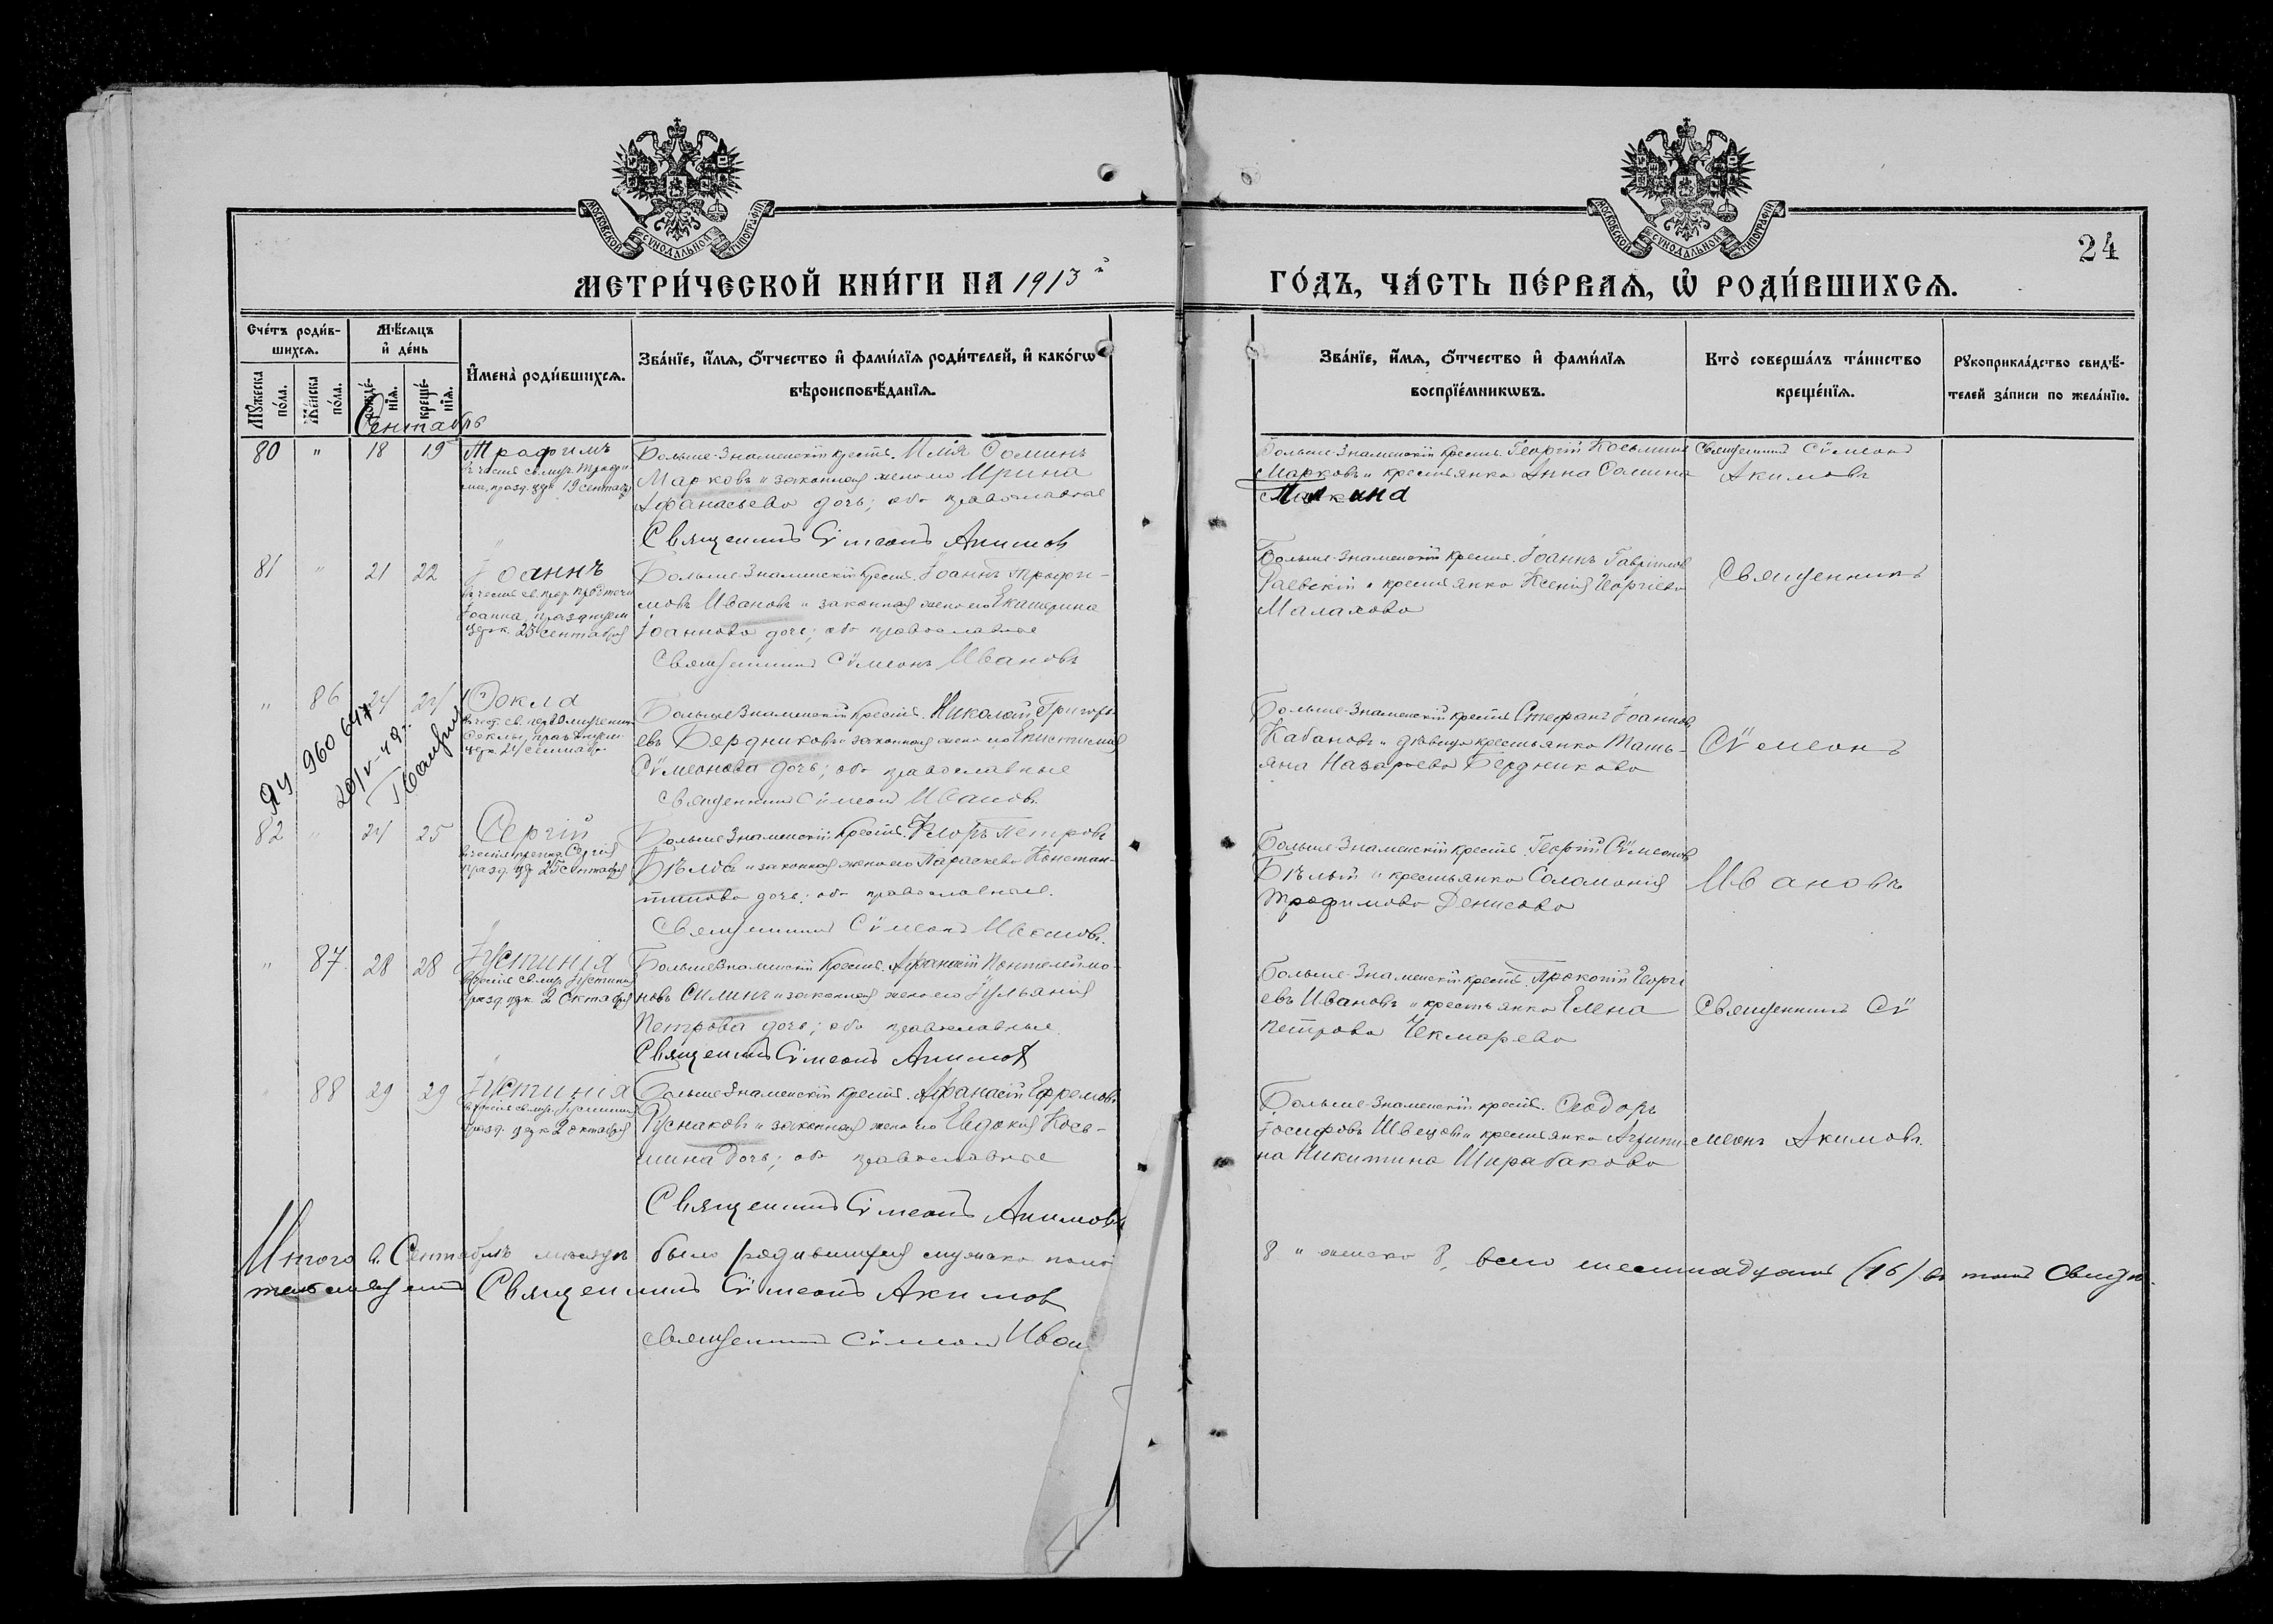 МОСКОВСКОЙ СѴНОДАЛЬНОЙ ТИПОГРАФІИ
МОСКОВСКОЙ СѴНОДАЛЬНОЙ ТИПОГРАФІИ
24
МЕТРИ́ЧЕСКОЙ КНИ́ГИ НА 1913й
ГО́ДЪ, ЧА́СТЬ ПЕ́РВАѦ, Ѡ҆ РОДИ́ВШИХСѦ.
Сче́тъ роди́в-
шихсѧ.
Мꙋ́жеска по́ла.
Же́нска по́ла.
Мѣ́сѧцъ
и҆ де́нь
рожде́-
нїѧ.
креще́-
нїѧ.
И҆мена̀ роди́вшихсѧ.
Зва́нїе, и҆́мѧ, о҆́тчество и҆ фами́лїѧ роди́телей, и҆ како́гѡ
вѣроисповѣ́данїѧ.
Зва́нїе, и҆́мѧ, о҆́тчество и҆ фами́лїѧ
воспрїе́мникѡвъ.
Кто̀ соверша́лъ та́инство
креще́нїѧ.
Рꙋкоприкла́дство свидѣ́-
телей за́писи по жела́нїю.
Сентябрь
80 " 18 19 Трофимъ
въ честь св. муч. Трофи-
ма, празд. цер. 19 сентяб
Больше-Знаменскій крест. Илія Соминъ
Марковъ и законная жена его Ирина
Афанасьева дочь; оба православные
Священникъ Сѵмеонъ Акимовъ
Больше-Знаменскій крест. Георгій Косьминъ
Марковъ и крестьянка Анна Сомина
Священникъ Сѵмеонъ
Акимовъ
81 " 21 22 Іоаннъ
Іоанна, празднуем
церк. 23 сентября
Больше Знаменскій крест. Іоаннъ Трофи-
мовъ Ивановъ и законная жена его Екатерина
Іоаннова дочь; оба православные
Священникъ Сѵмеонъ Ивановъ
Больше-Знаменскій крест. Іоаннъ Гавріилов
Раевскій и крестьянка Ксенія Георгіева
Малахова
Священникъ
" 86 24 24 Ѳекла
Ѳеклы, празднуем
церк. 24 сентябр.
960 647
20/V-49г.
Больше Знаменскій крест. Николай Григорь-
евъ Бердниковъ и законная жена его Епистимія
Сѵмеонова дочь; оба православные
Священникъ Сѵмеонъ Ивановъ
Больше-Знаменскій крест. Стефанъ Іоаннов
Кабановъ и дѣвица крестьянка Тать-
яна Назарьева Бердникова
Сѵмеонъ
82 " 24 25 Сергій
празд. цер 25 сентября
Больше Знаменскій крест. Флоръ Петровъ
Бѣлой и законная жена его Параскева Констан-
тинова дочь; оба православные.
Священникъ Сѵмеонъ Ивановъ.
Больше Знаменскій крест. Георгій Сѵмеонов
Бѣлый и крестьянка Соломонія
Трофимова Денисова
Ивановъ
" 87 28 28 Іустинія
въ честь св. муч. Іустины
празд. церк. 2 октября
Больше Знаменскій крест. Афанасій Пантелеимо-
новъ Силинъ и законная жена его Іульянія
Петрова дочь; оба православные.
Священникъ Сѵмеонъ Акимовъ
Больше-Знаменскій крест. Прокопій Георгі
евъ Ивановъ и крестьянка Елена
Петрова Чекмарева
Священникъ Сѵ
88 29 29 Іустинія
въ честь св. муч. Іустины
празд. церк 2 октября
Больше Знаменскій крест. Афанасій Ефремовъ
Руснаковъ и законная жена его Евдокія Кось-
мина дочь; оба православные
Священникъ Сѵмеонъ Акимовъ
Больше-Знаменскій крест. Ѳеодоръ
Іосифовъ Швецовъ и крестьянка Агрипи-
на Никитина Ширабакова
меонъ Акимовъ.
Итого въ Сентябрѣ мѣсяцѣ было родившихся мужска пола
8 и женска 8, всего шестнадцать (16) въ томъ свидѣ-
тельствуетъ Священникъ Сѵмеонъ Акимовъ
священникъ Сѵмеонъ Иван